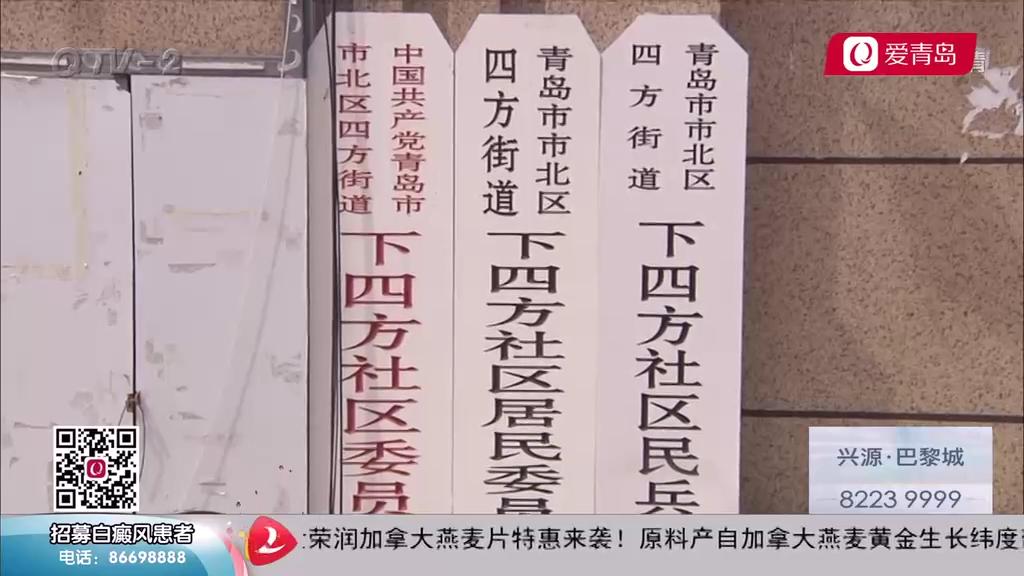 QTV-2
爱青岛
中国共产党青岛市
市北区四方街道
下四方社区委员
青岛市市北区
四方街道
下四方社区居民委员
青岛市市北区
四方街道
下四方社区民兵
兴源·巴黎城
8223 9999
招募白癜风患者
电话：86698888
荣润加拿大燕麦片特惠来袭！原料产自加拿大燕麦黄金生长纬度